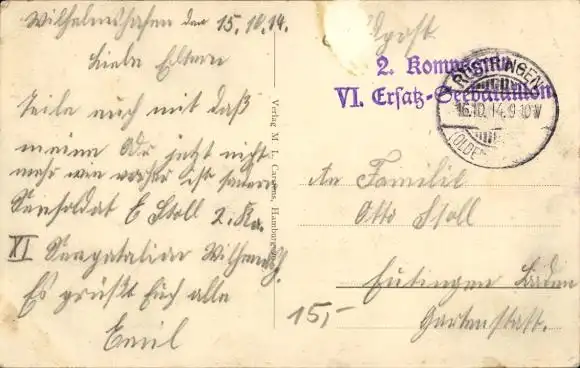 Wilhelmshafen den 15.10.14.
Liebe Eltern
Teile euch mit daß
meine Adr jetzt nicht
mehr wie vorher ist sondern
Seesoldat E Stoll 2. Ko.
XI Seebatalion Wilhelmsh.
Es grüßt Euch alle
Emil
Verlag M. L. Carstens, Hamburg
Feldpost.
2. Kompagnie
VI. Ersatz-Seebataillon
RÜSTRINGEN
16.10.14.9-10V
(OLDE
An Familie
Otto Stoll
Eutingen Baden
Gartenstatt.
15,-